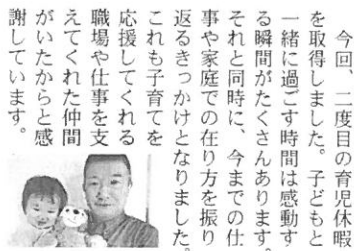 今回、二度目の育児休暇
を取得しました。子どもと
一緒に過ごす時間は感動す
る瞬間がたくさんあります。
それと同時に、今までの仕
事や家庭での在り方を振り
返るきっかけとなりました。
これも子育てを
応援してくれる
職場や仕事を支
えてくれた仲間
がいたからと感
謝しています。